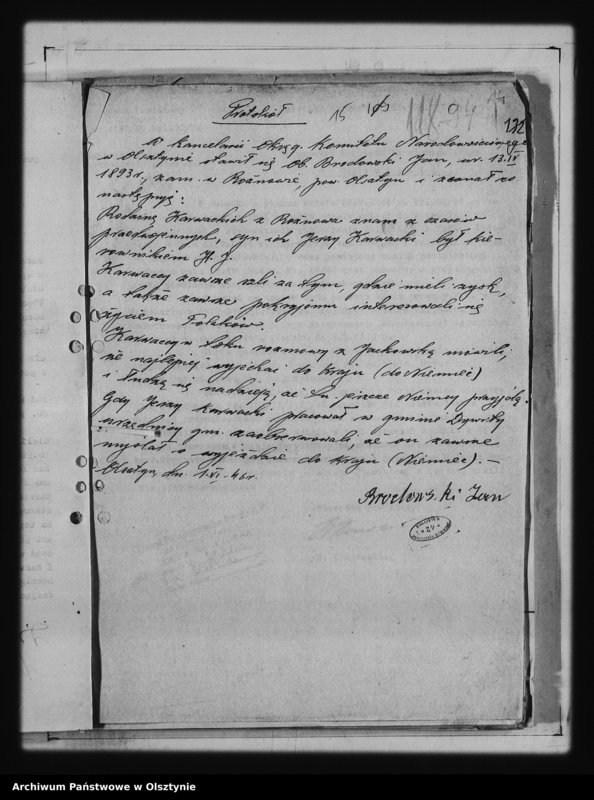 Protokół
15
132
W kancelarii Okręg. Komitetu Narodowościowego
w Olsztynie stawił się Ob. Brodowski Jan, ur. 13.II
1893 r., zam. w Rożnowie, pow. Olsztyn i zeznał co
następuje:
Rodzinę Karwackich z Rożnowa znam z czasów
przedwojennych, syn ich Jerzy Karwacki był kie-
rownikiem H. J.
Karwaccy zawsze szli za tym, gdzie mieli zysk,
a także zawsze pokryjomu interesowali się
życiem Polaków.
Karwaccy w toku rozmowy z Jackowską mówili,
że najlepiej wyjechać do kraju (do Niemiec)
i tuchą się nadzieją, że tu jeszcze Niemcy przyjdą.
Gdy Jerzy Karwacki pracował w gminie Dywity
urzędnicy gm. zaobserwowali, że on zawsze
myślał o wyjeździe do kraju (Niemiec). –
Olsztyn, dn. 1.VI.46 r.
Brodowski Jan
Archiwum Państwowe w Olsztynie